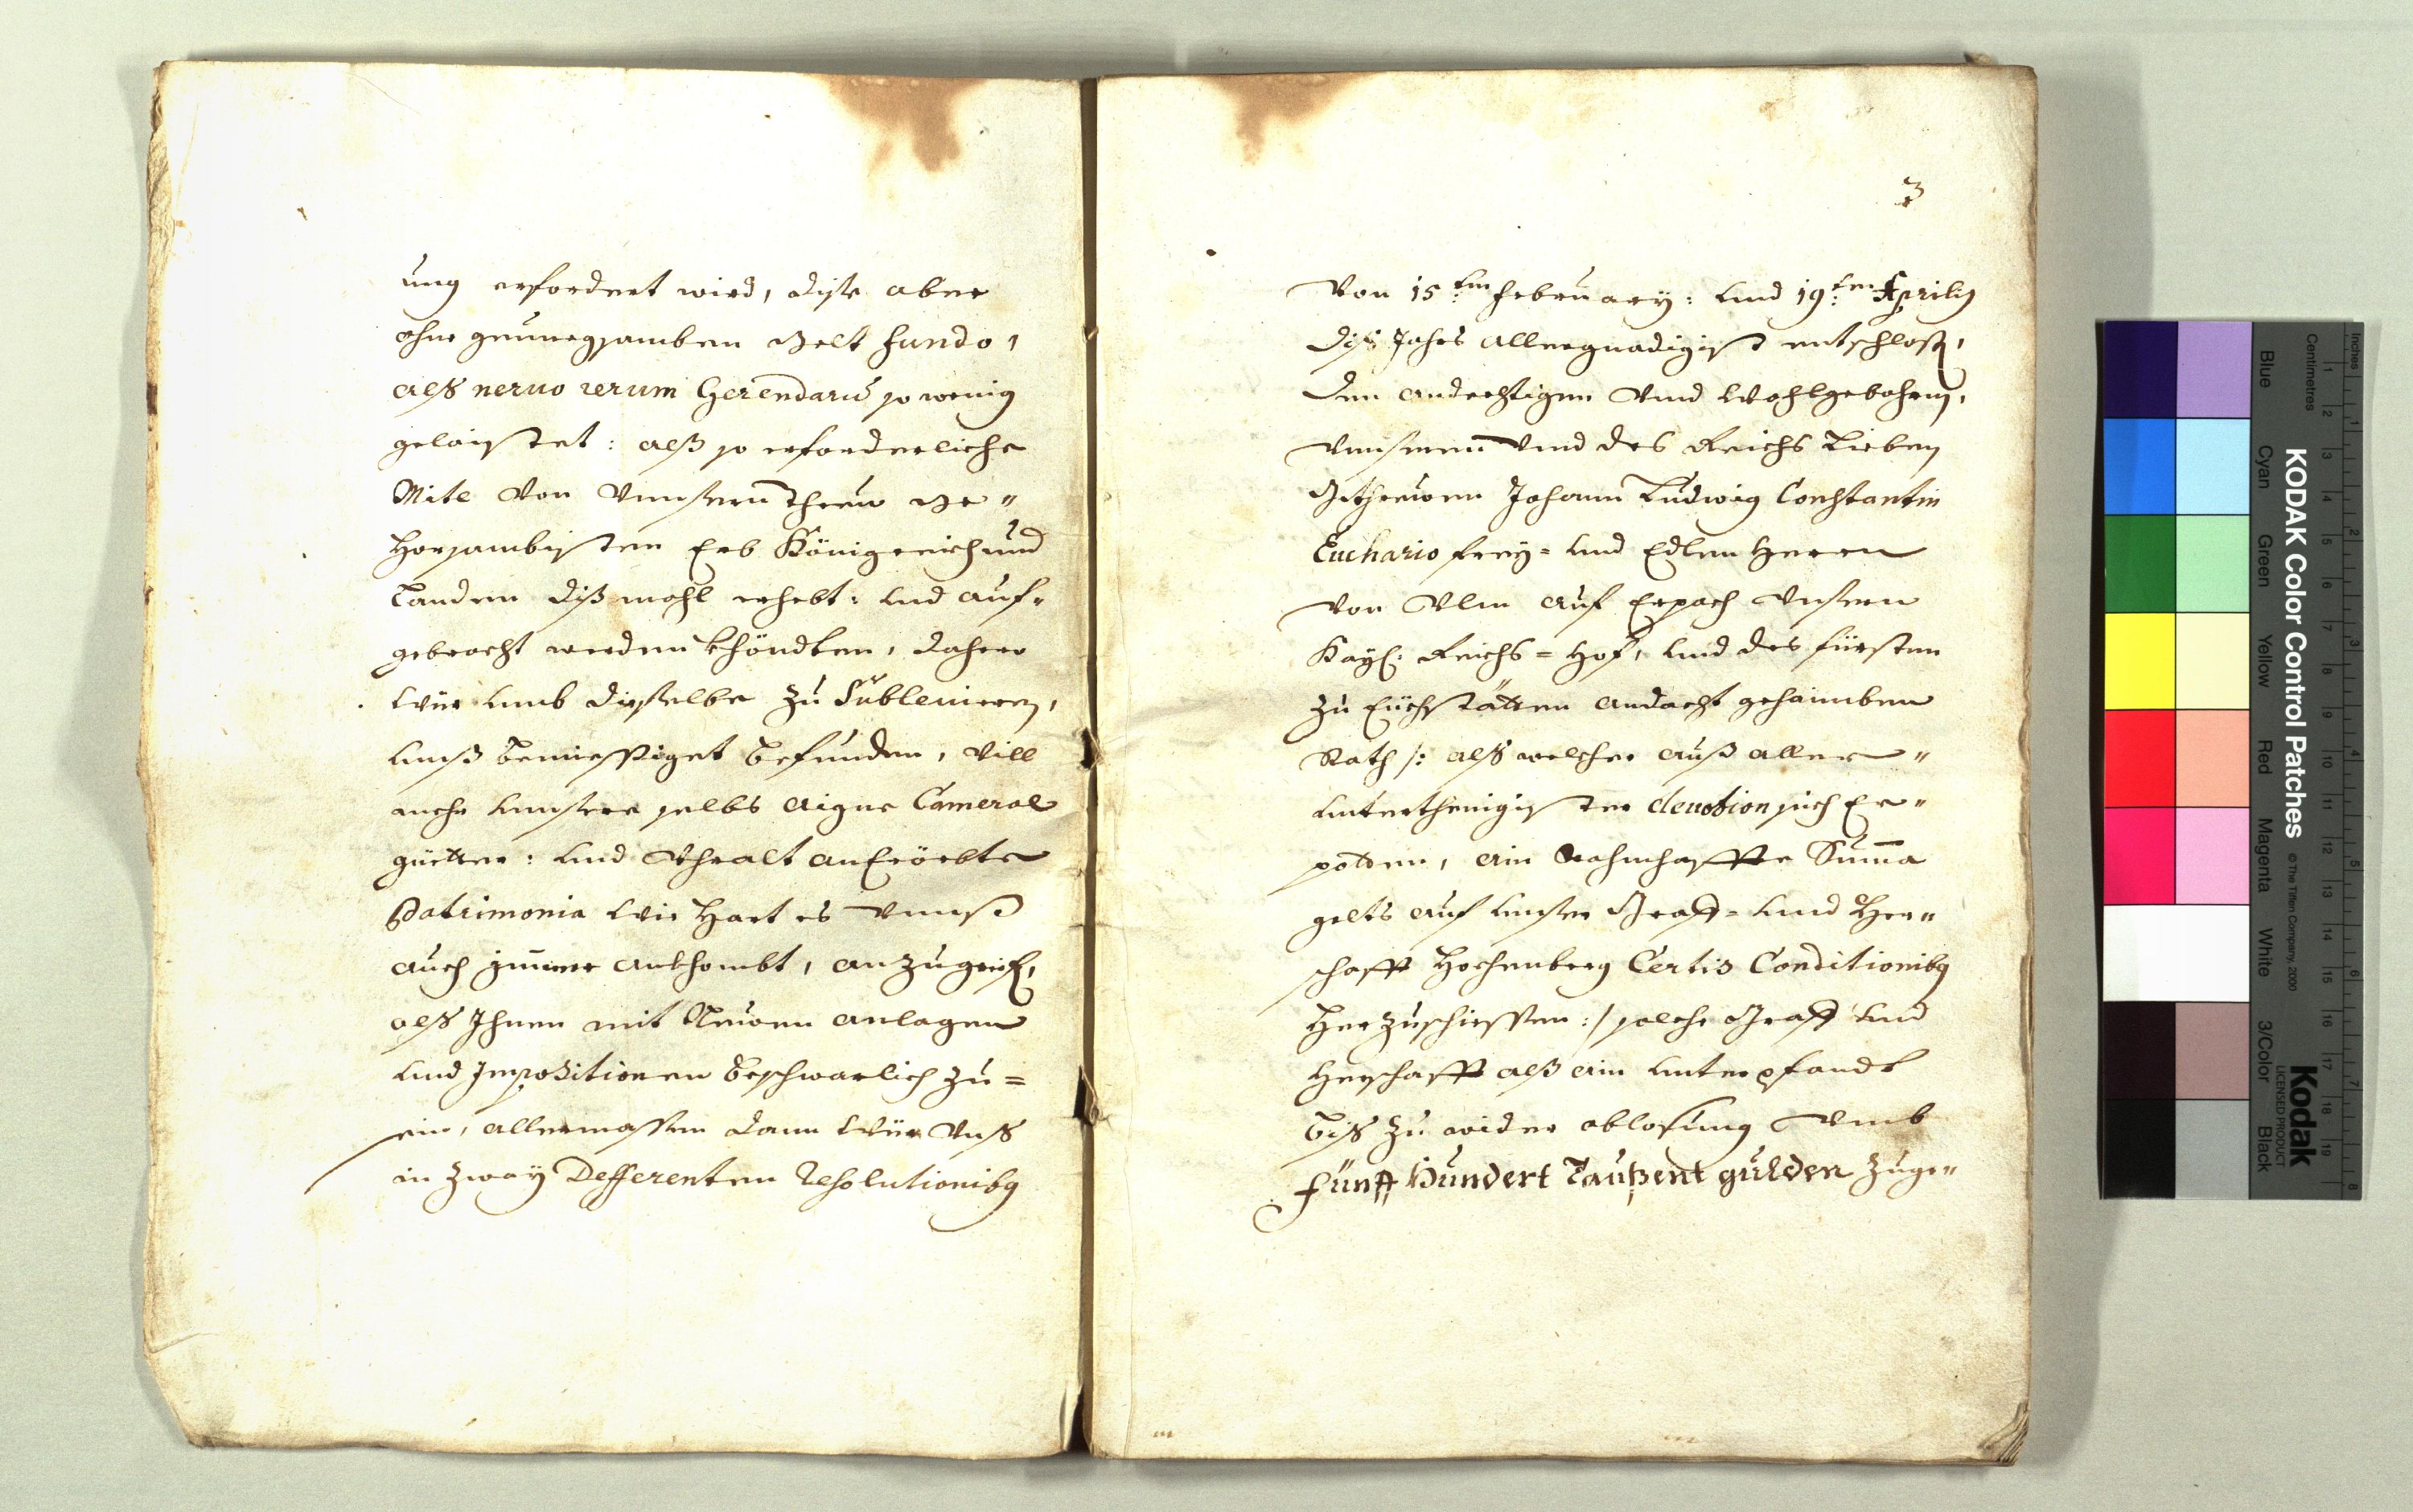 ung erfordert wird, diße aber
ohne genuegsamben Gelt fundo,
alß neruo rerum Gerendarū so wenig
gelaistet: alß so erforderliche
Mitl von Vnnsern threw Ge"
horsambisten Erb Königreich und
Landen dißmahl erhebt: und auf-
gebracht werden khöndten, dahero
Wür umb dieselbe zu Sublevieren,
unß bemiessiget befunden, vill
mehr unsere selbs aigne Cameral
güetter: und Vhralt anErörbte
Patrimonia wie hart es Vnnß
auch immer ankhombt, anzugreiff,
alß Ihnen mit Neuen anlagen
und Impositionen beschwarlich zu=
sein, allermassen dann Wür Vnß
in zway Defferenten resolutionibus
3
Von 15ten February: und 19ten Aprilis
diß Jahrs allergnadigist entschloß,
den andechtigen Vnd Wohlgebohrn,
Vnnsern Vnd des Reichs Lieben
Getrewen Johann Ludwig Constantin
Euchario frey= und Edlen Herrn
von Vlm auf Erpach Vnsern
Kayl: Reichs=Hof, und des fürsten
zu Eüchstätten andacht gehaimben
Rath /: alß welcher auß aller"
unterthenigister devotion sich Er"
potten, ein Nahmhaffte Suma
gelts auf unser Graff= und Herr"
schafft Hochenberg Certis Conditionibus
herzuschiessen :/ solche Graff und
Herschafft alß ein unterpfandt
biß zu wider ablosung Vmb
fünff Hundert Taußent gulden zuge"